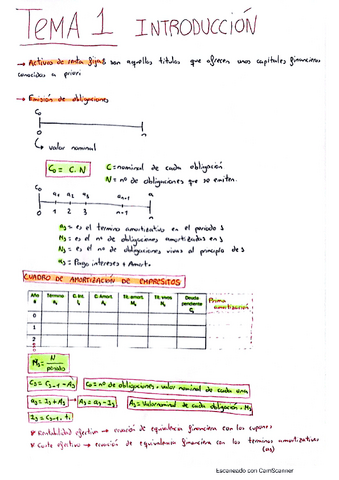 TEMA 1 INTRODUCCIÓN
→ Activos de renta fija: son aquellos titulos que ofrecen unos capitales financieros
conocidos a priori
→ Emisión de obligaciones
C₀
0 n
↳ valor nominal
C₀ = C·N C = nominal de cada obligación
N = nº de obligaciones que se emiten.
C₀ a₁ a₂ a₃ aₙ₋₁ aₙ
0 1 2 3 n-1 n
aₛ = es el termino amortizativo en el periodo s
Mₛ = es el nº de obligaciones amortizadas en s
Nₛ = es el nº de obligaciones vivas al principio de s
aₛ = Pago intereses + Amort.
CUADRO DE AMORTIZACIÓN DE EMPRESTITOS
Año Término aₛ C. Int. Iₛ C. Amort. Aₛ Tit. amort. Mₛ Tit. vivos Nₛ Deuda pendiente Cₛ Prima amortización
0
1
2
Mₛ = N / periodo
Cₛ = Cₛ₋₁ - Aₛ C₀ = nº de obligaciones · valor nominal de cada una
aₛ = Iₛ + Aₛ → Aₛ = aₛ - Iₛ Aₛ = Valor nominal de cada obligación · Mₛ
Iₛ = Cₛ₋₁ · i
* Rentabilidad efectiva → ecuación de equivalencia financiera con los cupones
* Coste efectivo → ecuación de equivalencia financiera con los terminos amortizativos
(aₛ)
Escaneado con CamScanner